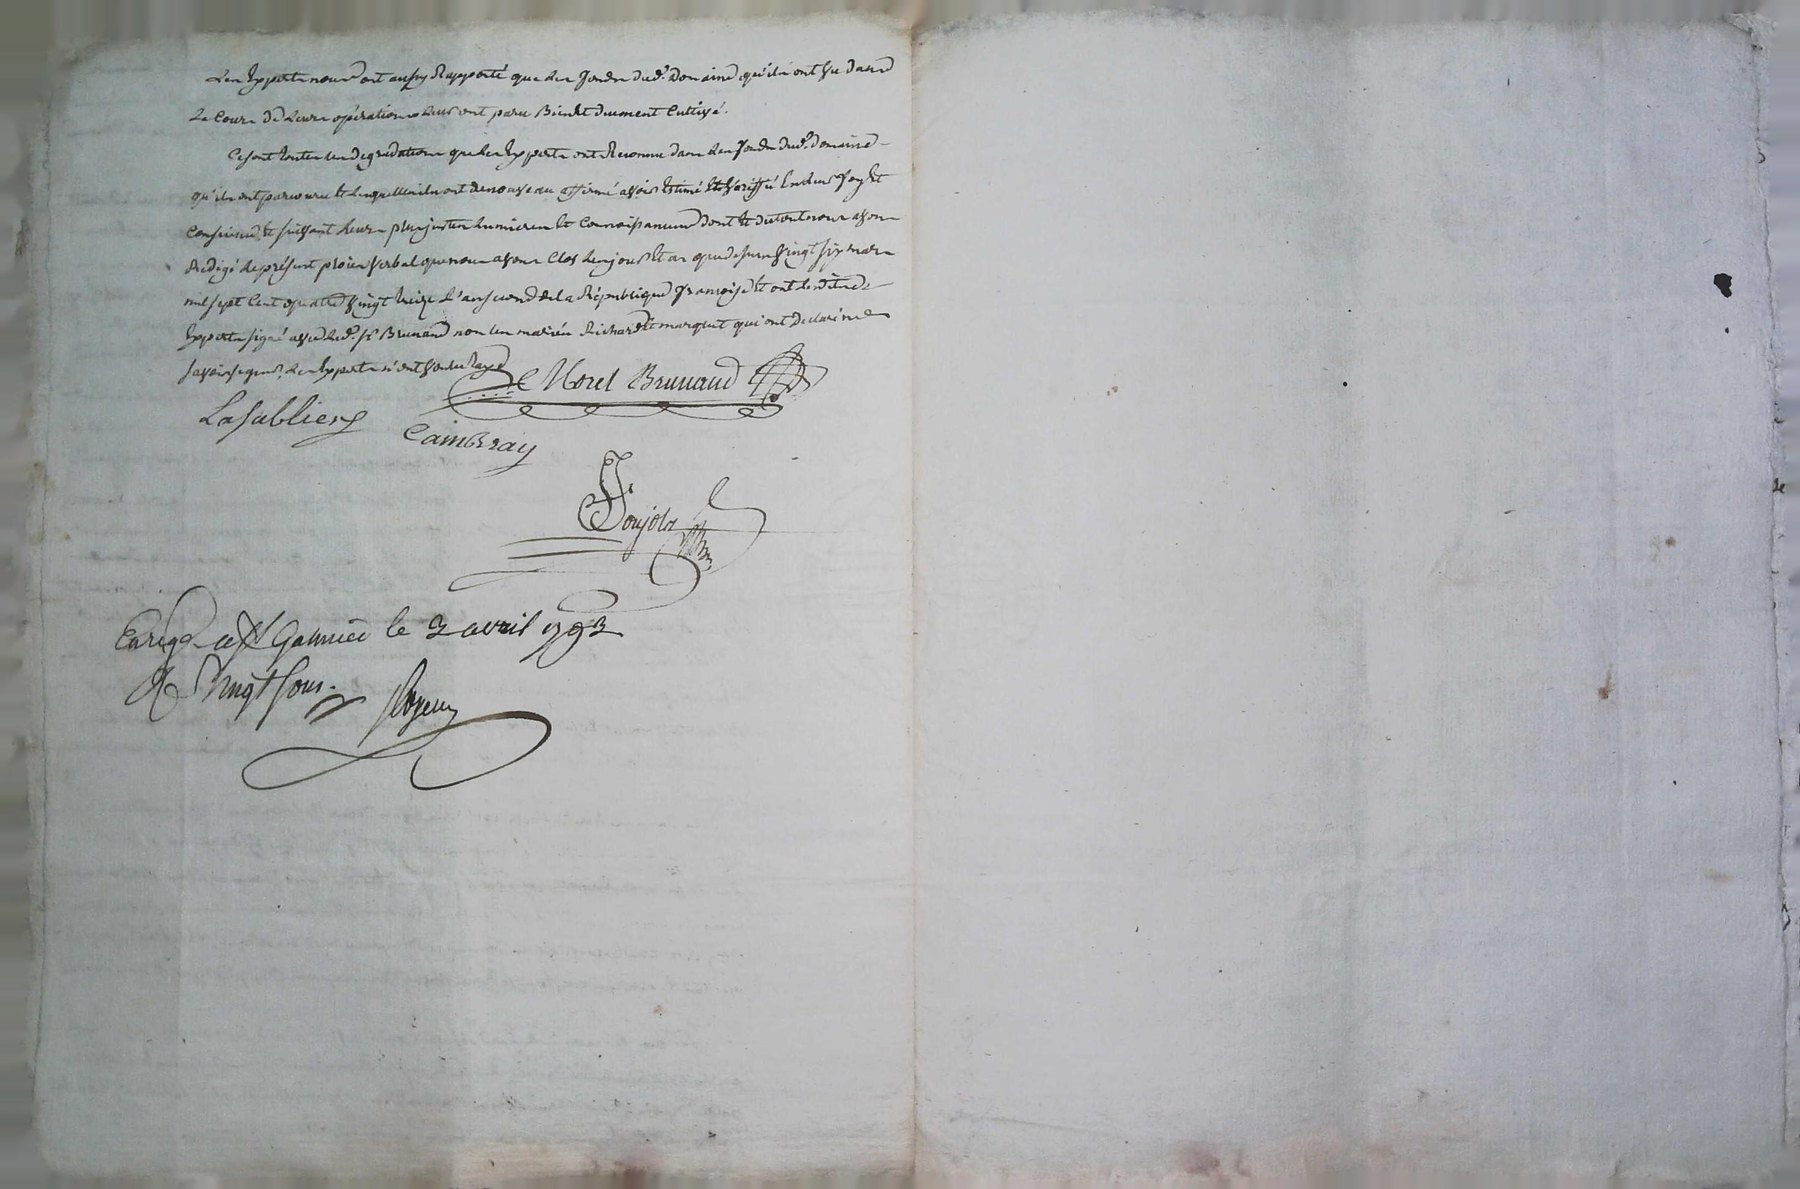 Les Experts nous ont aussy Rapporté que les fonds dud. Domaine qu'ils ont vu dans
Le Cours de Leurs opérations leurs ont paru Bien et duement Cultivé.
Ce sont toutes les degradations que les Experts ont Reconnu dans les fonds dud. domaine
qu'ils ont parcouru et lesquelles ils ont denouveau affirmé avoir Estimé et Vériffié En leur foy et
Conscience et suivant leurs plus justes lumieres et Connoissances dont et du tout nous avons
Redigé le présent procès verbal que nous avons Clos les jours et an que dessus vingt six mars
mil sept Cent quatre vingt treize L'an second de la République françoise et ont lesdits
Experts signé avec led. Sr Brunand non les mariés Richard et marquet qui ont Declaré ne
savoir signer, Les Experts n'ont voulu taxe
Morel Brunand
Lasabliere
Cambray
Goujols
Enreg. a St Galmier le 3 avril 1793
R Vingt sous.